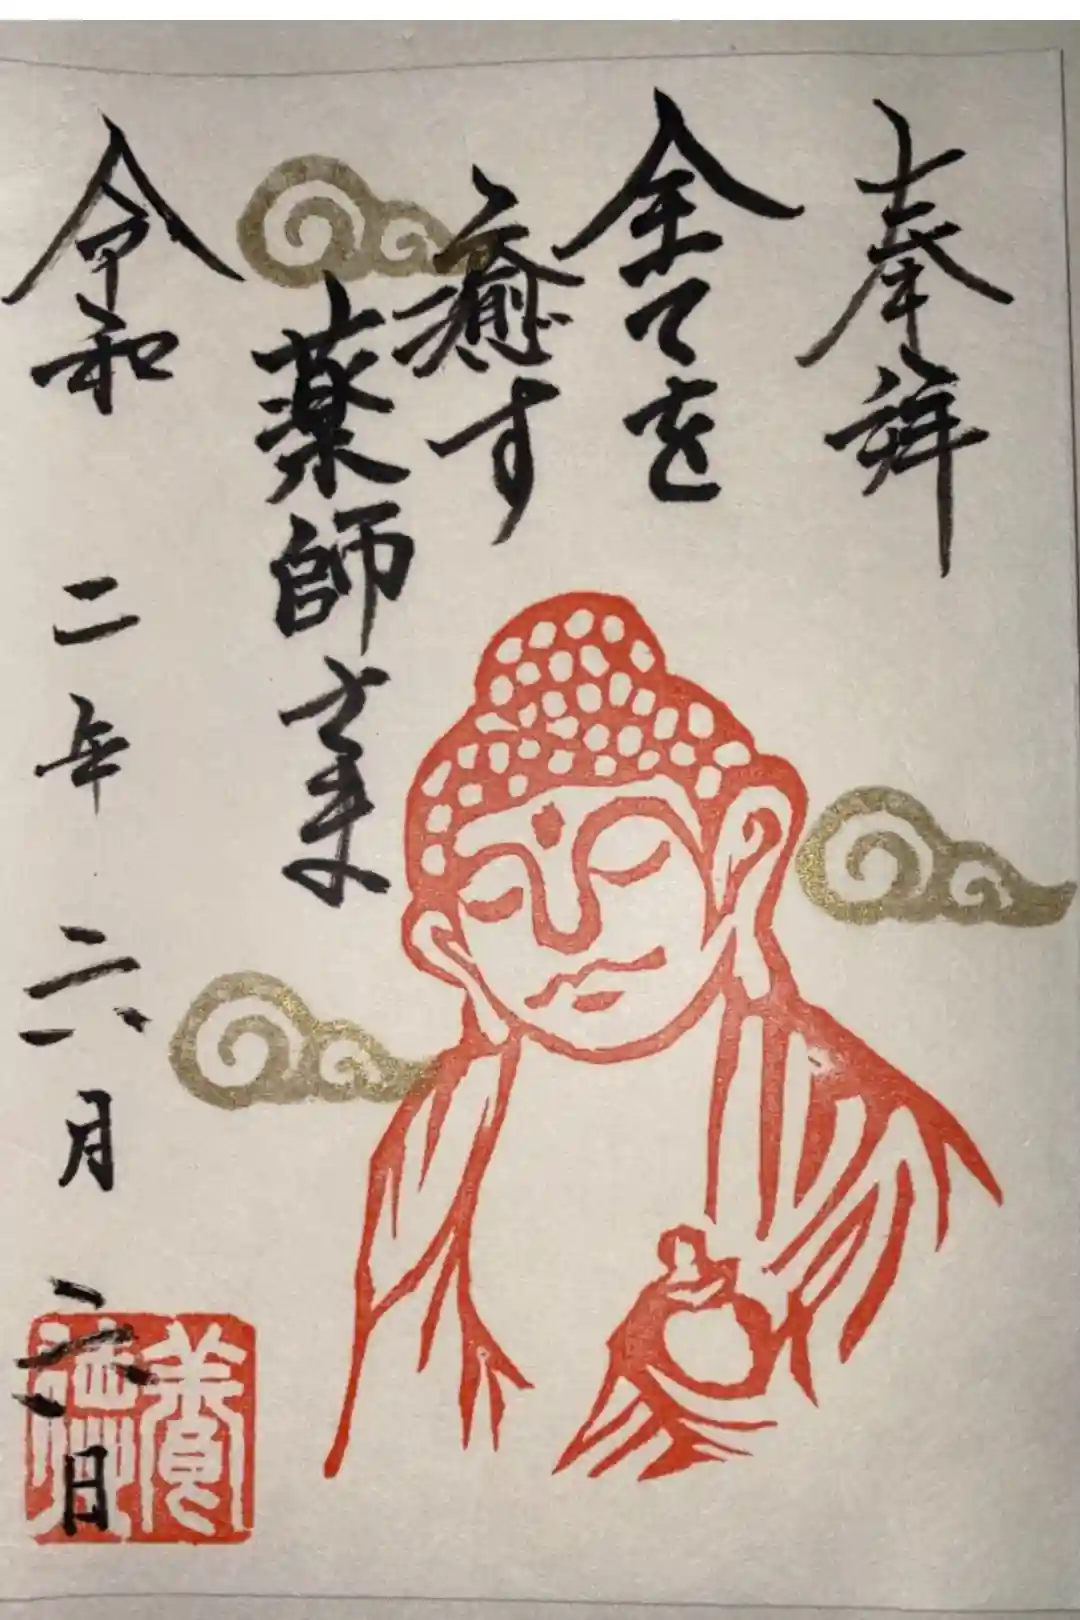 奉拝
全てを
癒す
薬師さま
令和二年六月六日
養徳